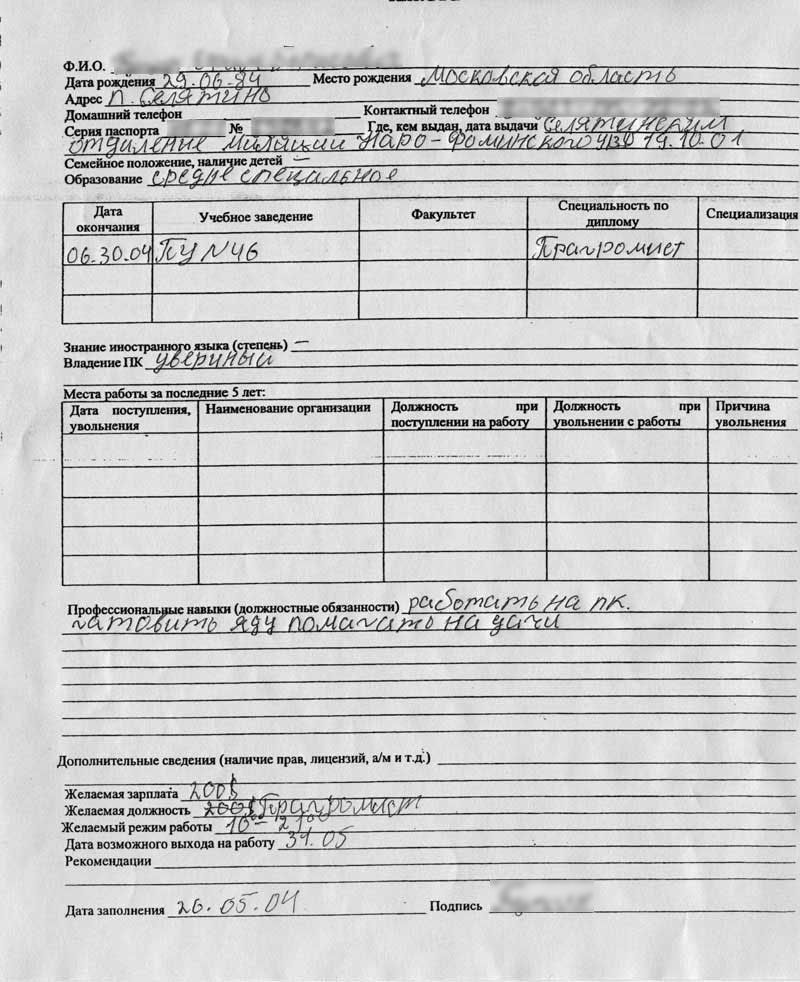 Ф.И.О.
Дата рождения 29.06.84 Место рождения Московская область
Адрес п. Селятино
Домашний телефон Контактный телефон
Серия паспорта № Где, кем выдан, дата выдачи Селятинским
отделение милиции Наро-Фоминского УВД 19.10.01
Семейное положение, наличие детей —
Образование средне специальное
Дата окончания Учебное заведение Факультет Специальность по диплому Специализация
06.30.04 ПУ N46 Праграмист
Знание иностранного языка (степень) —
Владение ПК увериный
Места работы за последние 5 лет:
Дата поступления, увольнения Наименование организации Должность при поступлении на работу Должность при увольнении с работы Причина увольнения
Профессиональные навыки (должностные обязанности) работать на пк.
гатовить яду памагать на дачи
Дополнительные сведения (наличие прав, лицензий, а/м и т.д.)
Желаемая зарплата 200$
Желаемая должность 200$ Праграмист
Желаемый режим работы 10⁰⁰ – 21⁰⁰
Дата возможного выхода на работу 31.05
Рекомендации
Дата заполнения 26.05.04 Подпись